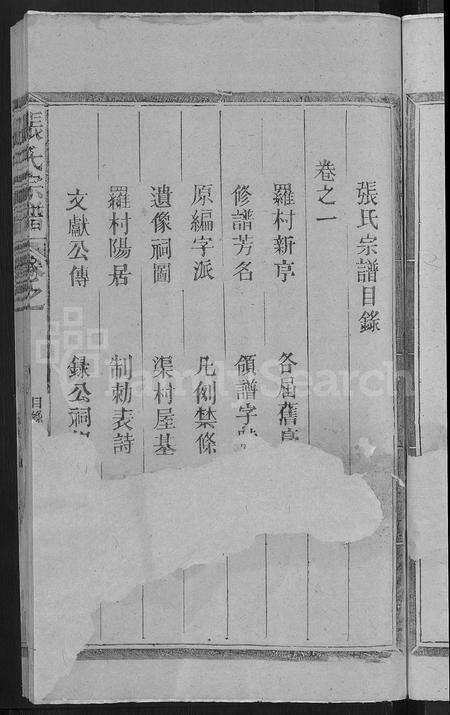 張氏宗譜目錄
卷之一
羅村新序 各屆舊序
修譜芳名 領譜字
原編字派 凡例禁條
遺像祠圖 渠村屋基
羅村陽居 制勅表詩
文獻公傳 錄公祠
張氏宗譜 卷之一
目錄
FamilySearch